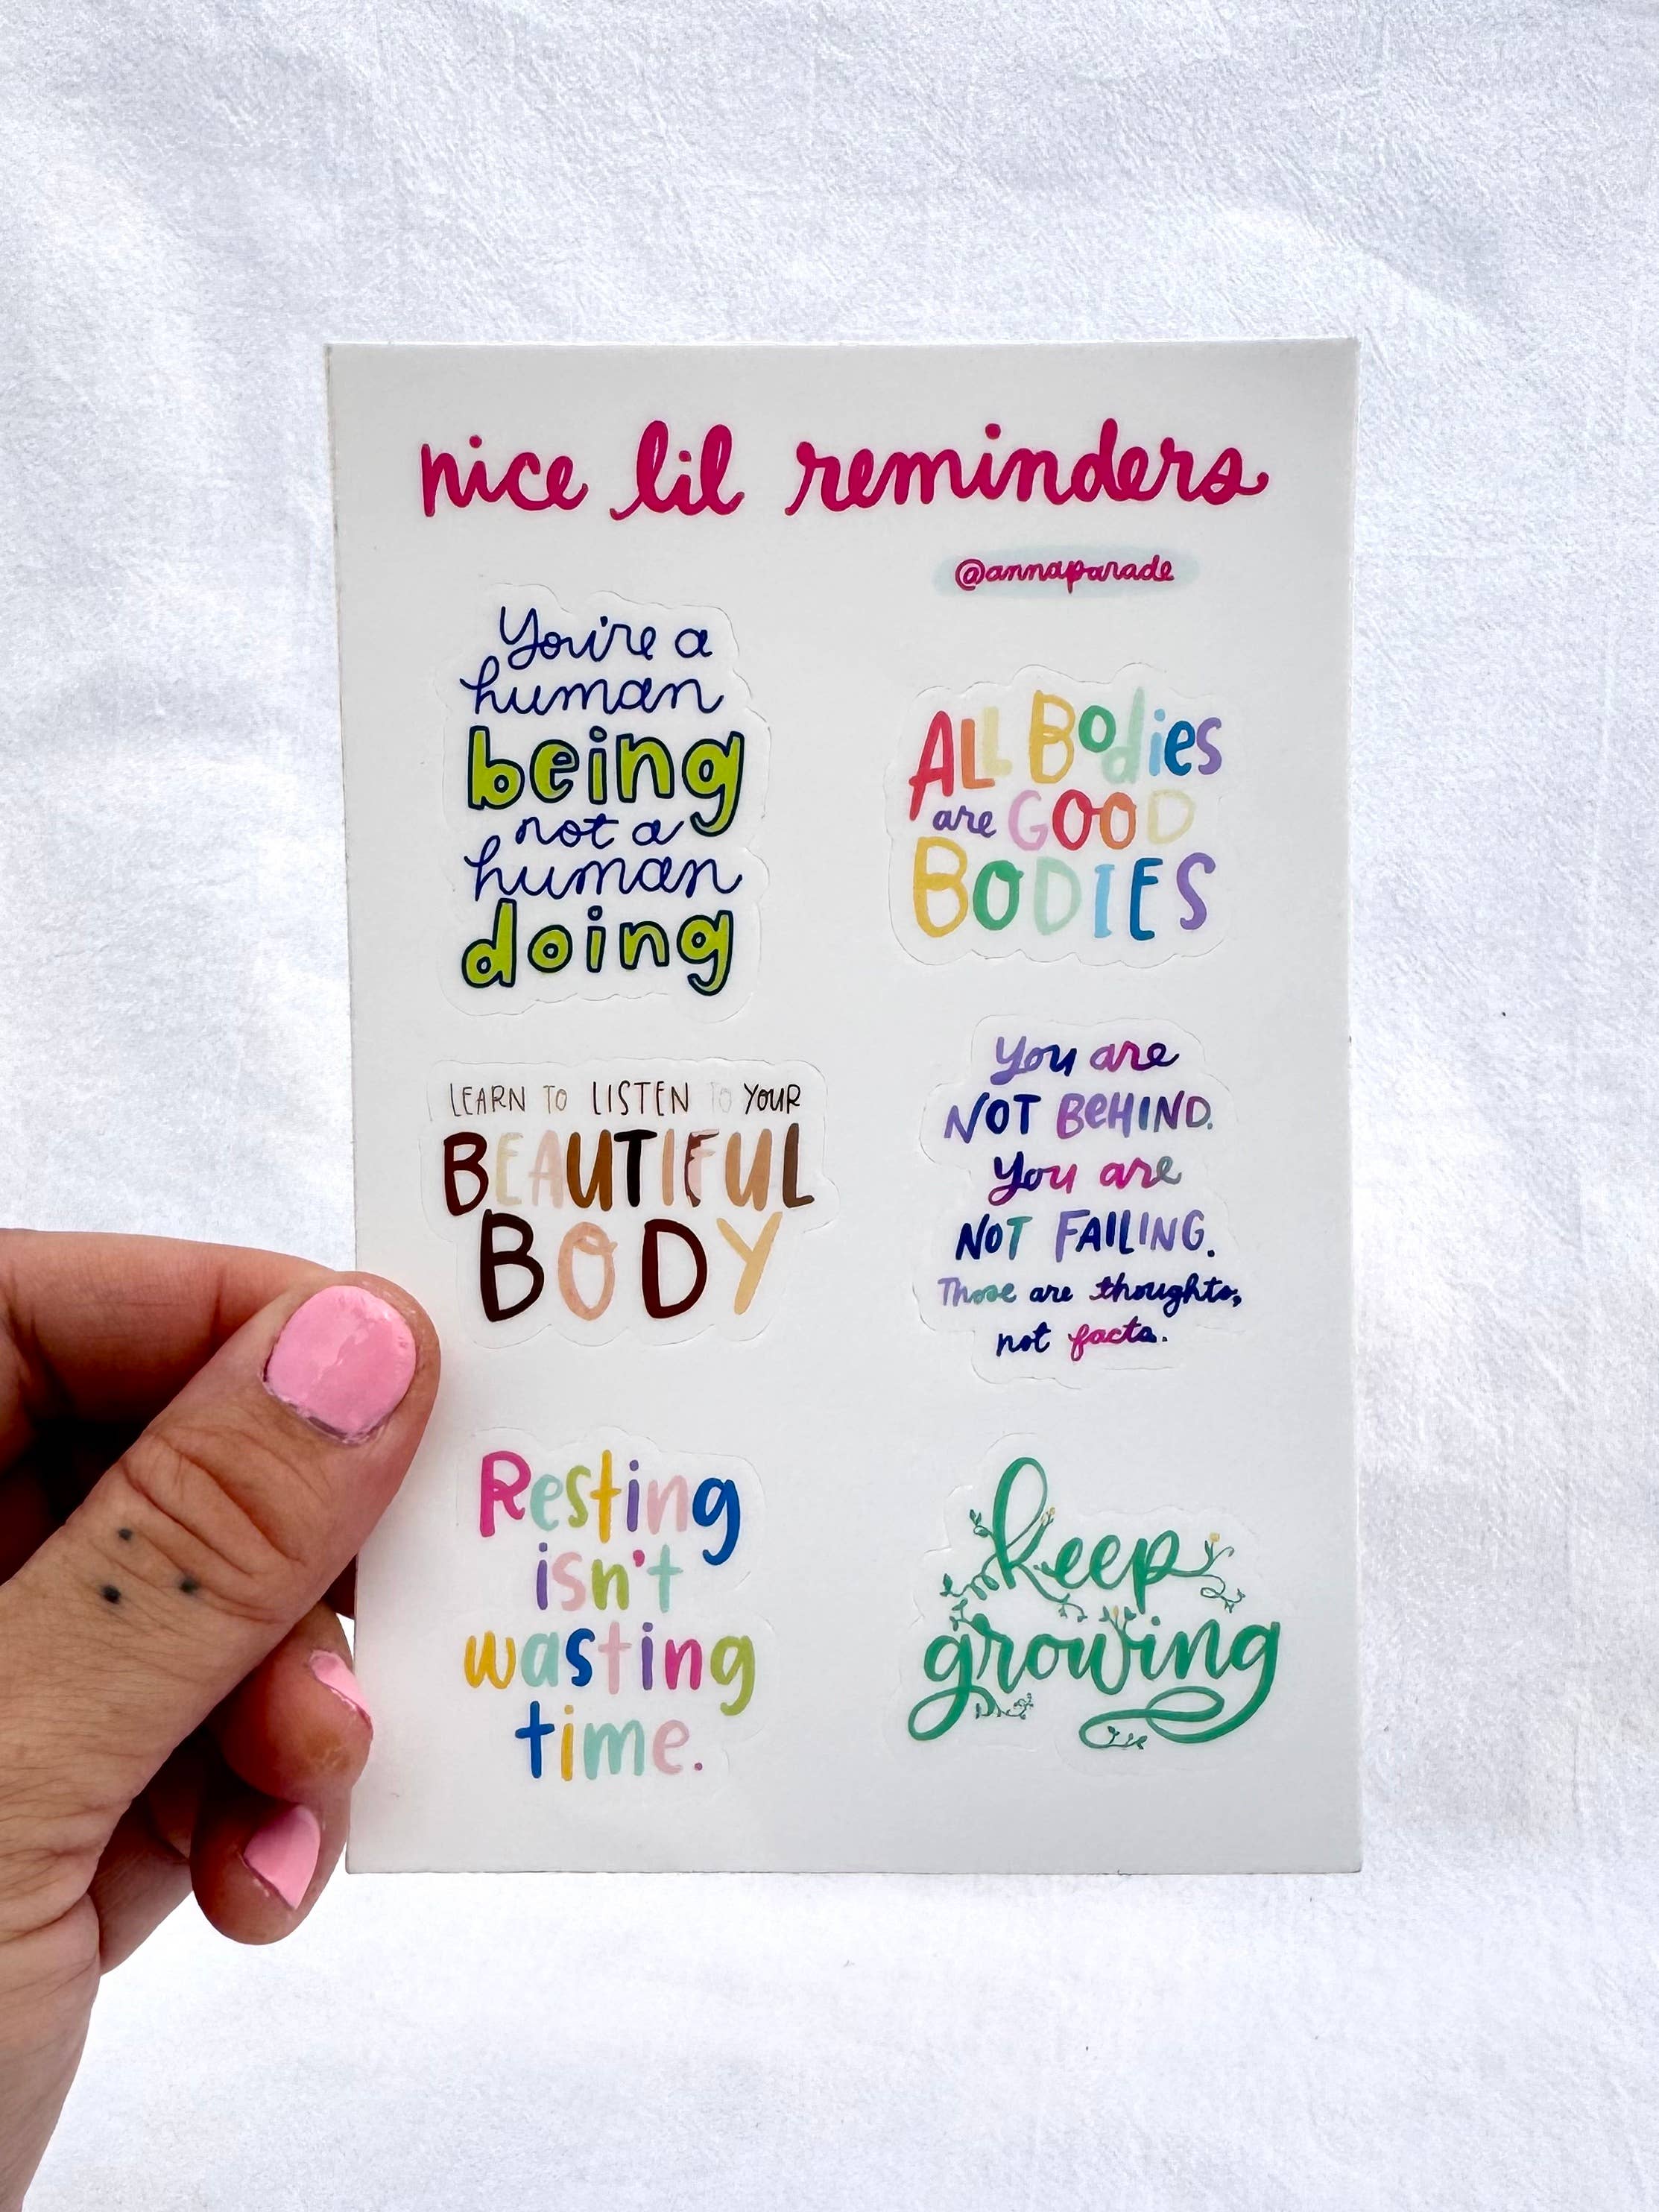 nice lil reminders
@annaparade
You're a
human
being
not a
human
doing
ALL BODies
are GOOD
BODIES
LEARN TO LISTEN TO YOUR
BEAUTIFUL
BODY
You are
NOT BEHIND.
You are
NOT FAILING.
Those are thoughts,
not facts.
Resting
isn't
wasting
time.
keep
growing